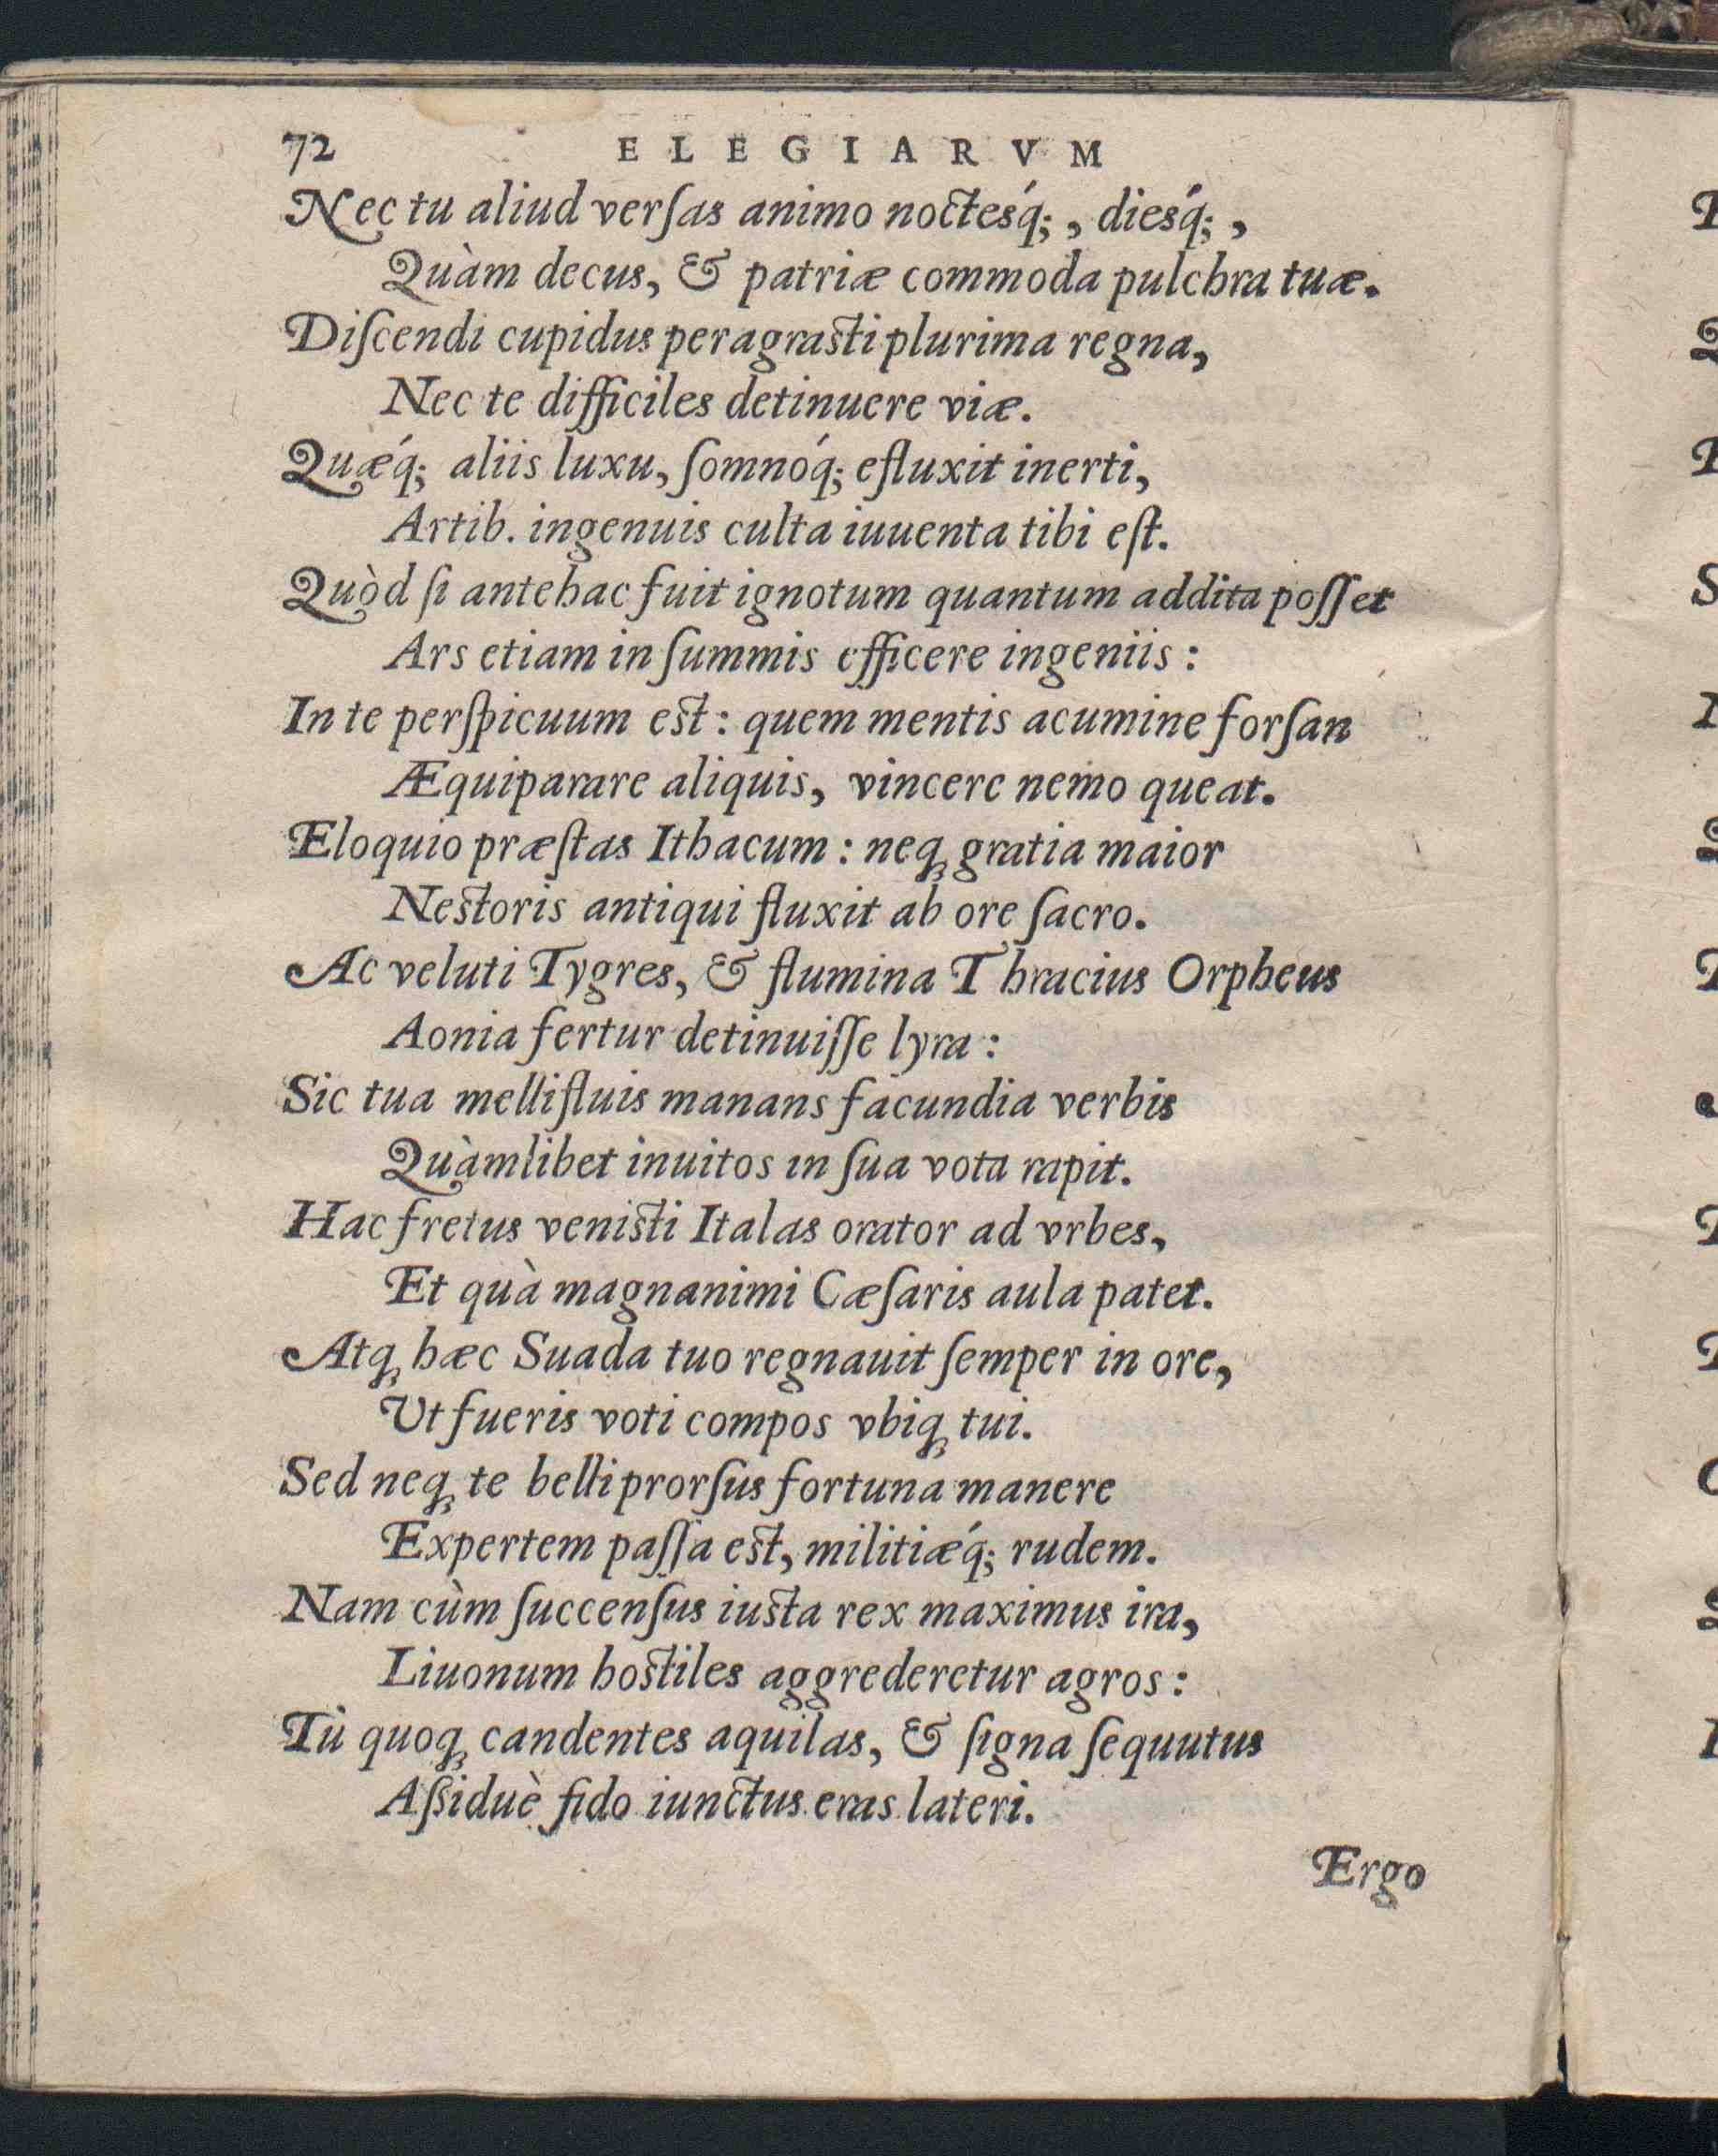 72 ELEGIARVM
Nec tu aliud verſas animo noctesq́;, diesq́;,
Quàm decus, & patriæ commoda pulchra tuæ.
Diſcendi cupidus peragraſti plurima regna,
Nec te difficiles detinuere viæ.
Quæq́; aliis luxu, ſomnoq́; efluxit inerti,
Artib. ingenuis culta iuuenta tibi eſt.
Quòd ſi antehac fuit ignotum quantum addita poſſet
Ars etiam in ſummis efficere ingeniis:
In te perſpicuum eſt: quem mentis acumine forſan
Æquiparare aliquis, vincere nemo queat.
Eloquio præſtas Ithacum: neq̨ gratia maior
Neſtoris antiqui fluxit ab ore ſacro.
Ac veluti Tygres, & flumina Thracius Orpheus
Aonia fertur detinuiſſe lyra:
Sic tua mellifluis manans facundia verbis
Quàmlibet inuitos in ſua vota rapit.
Hac fretus veniſti Italas orator ad vrbes,
Et quà magnanimi Cæſaris aula patet.
Atq̨ hæc Suada tuo regnauit ſemper in ore,
Ut fueris voti compos vbiq̨ tui.
Sed neq̨ te belli prorſus fortuna manere
Expertem paſſa eſt, militiæq́; rudem.
Nam cùm ſuccenſus iuſta rex maximus ira,
Liuonum hoſtiles aggrederetur agros:
Tù quoq̨ candentes aquilas, & ſigna ſequutus
Aſſiduè fido iunctus eras lateri.
Ergo